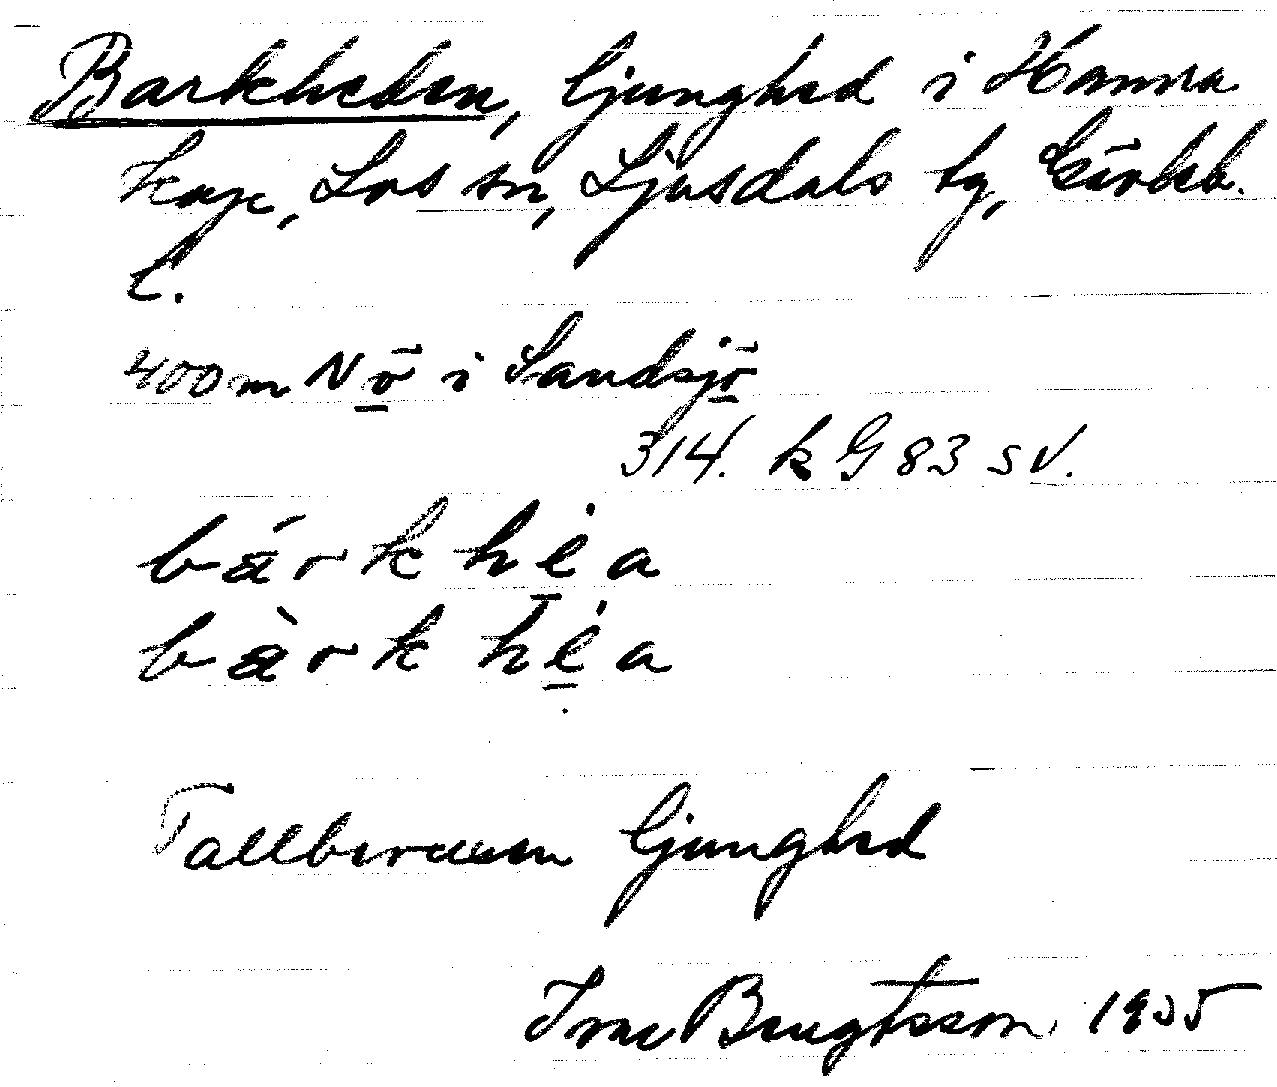 Barkheden, ljunghed i Hamra
kap, Los sn, Ljusdals tg, Gävleb.
l.
400 m NÖ i Sandsjö
314. k G 83 SV.
bárk hèa
bàrk hèa
Tallbevuxen ljunghed
Bengtsson 1955